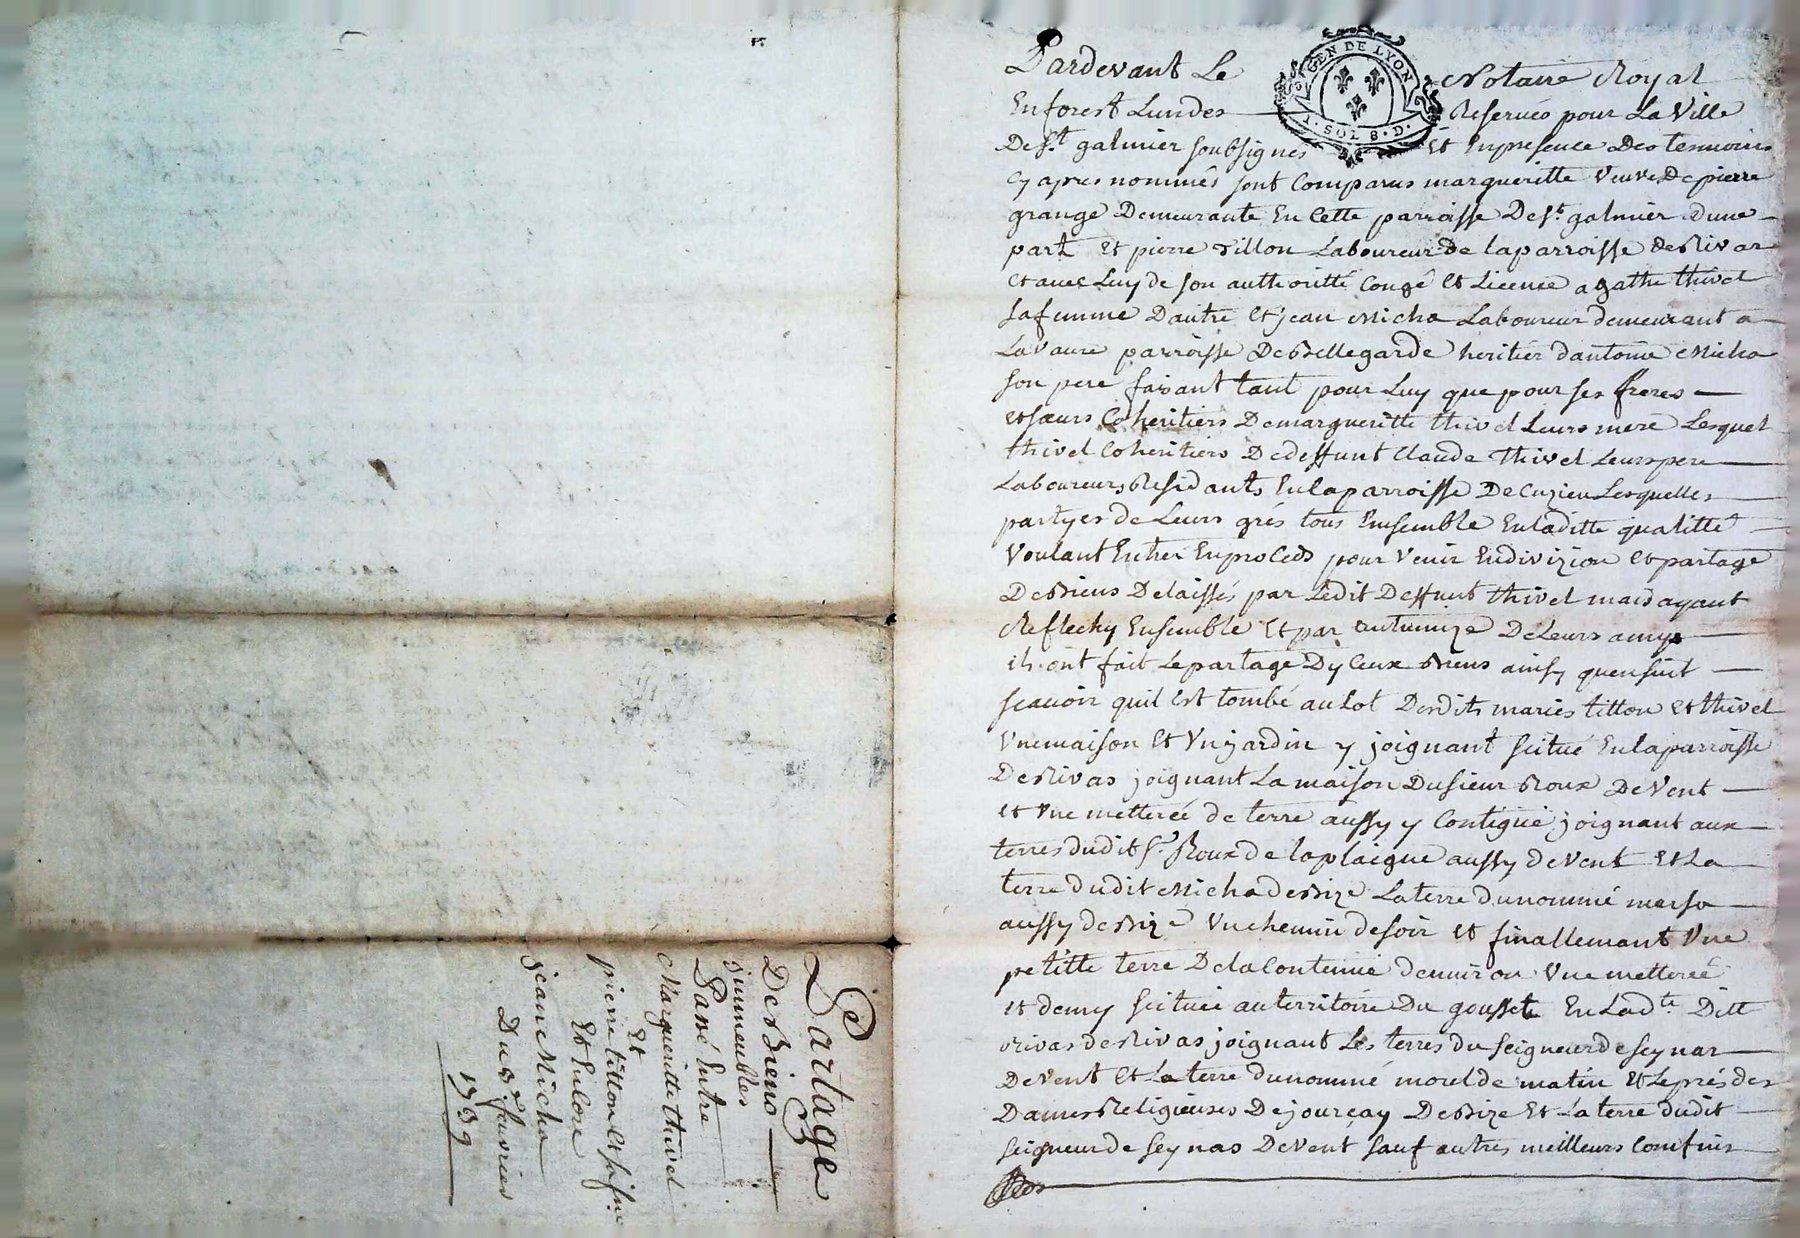 Pardevant Le Notaire Royal
GEN DE LYON
1 · SOL 8 · D ·
En forest Lundes Reservés pour La Ville
De St galmier soubsignés Et En presence Des temoins
Cy apres nommés sont Comparus margueritte Veuve De pierre
grange Demeurante En Cette parroisse De St galmier d'une
part Et pierre tillon Laboureur de la parroisse de Rivas
Et avec Luy de son authoritté Congé Et Licence agathe thivel
sa femme D'autre Et jean Micha Laboureur demeurant a
La Vaure parroisse De Bellegarde heritier d'antoine Micha
son pere faisant tant pour Luy que pour ses freres
Et sœurs Coheritiers De margueritte thivel Leurs mere Lesquel
thivel Coheritiers De deffunt Claude thivel Leurs pere
Laboureurs Residants En la parroisse De Cuzieu Lesquelles
partyes de Leurs grés tous Ensemble En laditte qualitté
Voulant Entrer En procéds pour Venir En divizion Et partage
Des Biens Delaissés par Ledit Deffunt thivel mais ayant
Reflechy Ensemble Et par De Leurs amys
ils ont fait Le partage D'y Ceux Biens ainsy quensuit
scavoir quil Est tombé au Lot Desdits mariés tillon Et thivel
Une maison Et Un jardin y joignant scitué En la parroisse
De Rivas joignant La maison Du sieur Roux De Vent
et Une metterée de terre aussy y Contiguë joignant aux
terres dudit Sr Roux de la plaigne aussy de Vent Et La
terre dudit Micha de Bize La terre du nommé marso
aussy de Bize Un chemin de soir et finallemant Une
petitte terre De la Contenüe d'environ Une metterée
et demy scituée au territoire Du gousset En Lad.te Ditt
Rivas de Rivas joignant Les terres du seigneur de seynas
De Vent Et La terre du nommé morel de matin Et Le prés des
Dames Religieuses De jourcay De Bize Et La terre dudit
seigneur de seynas De Vent sauf autres meilleurs Comfins
Partage
Des Biens
immeubles
Passé Entre
Margueritte thivel
Et
pierre tillon Et sa fme
Et Encore
jean Micha
Du fevrier
1739